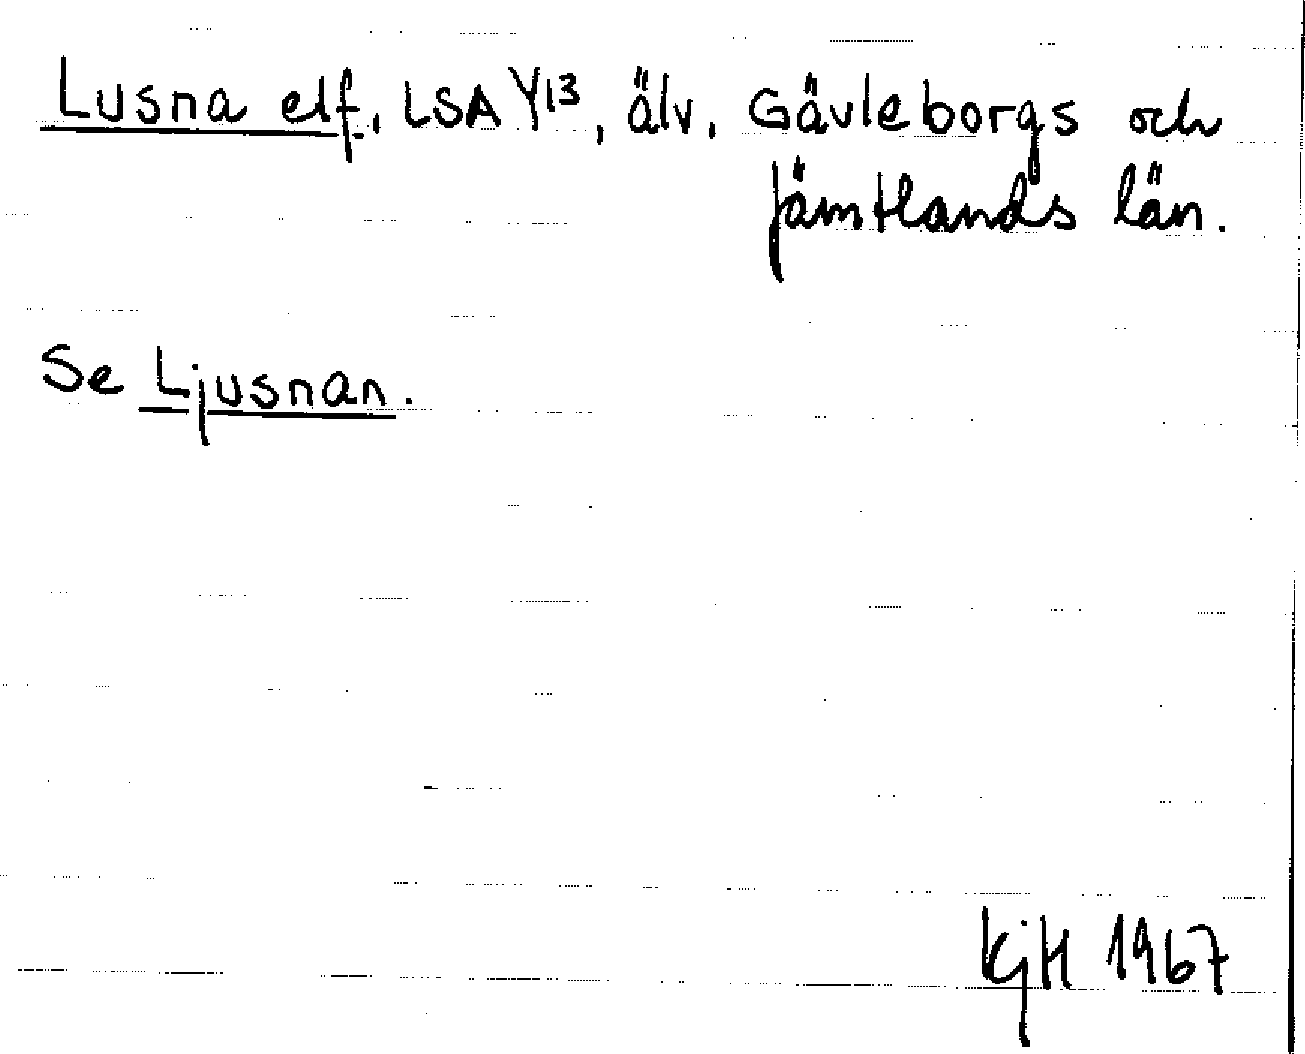 Lusna elf., LSA Y13, älv, Gävleborgs och
Jämtlands län.
Se Ljusnan.
KjH 1967